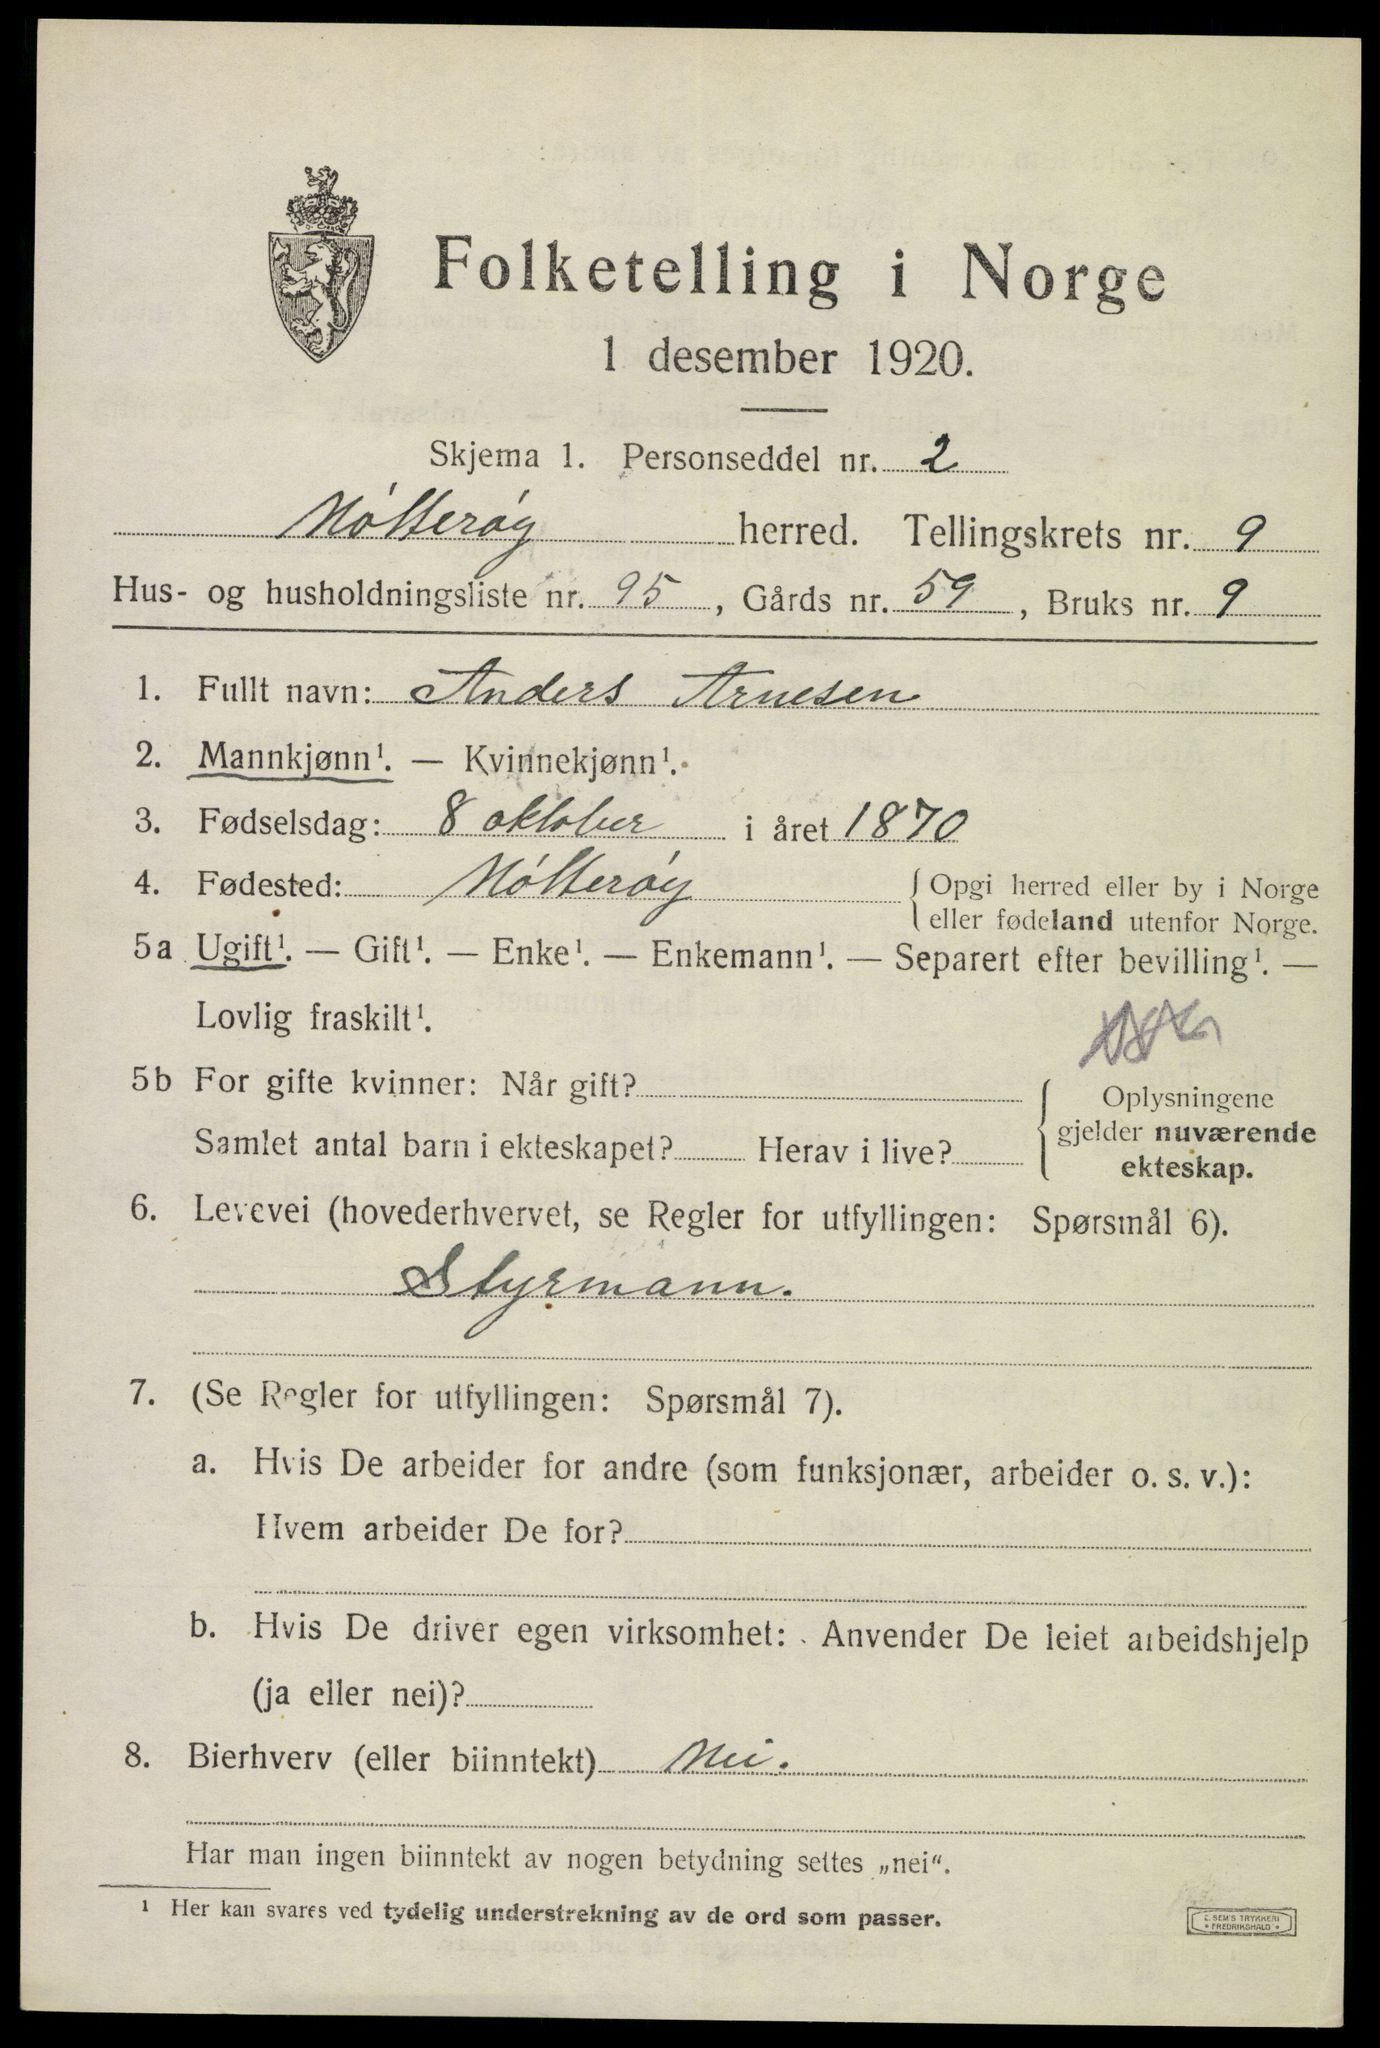 Folketelling i Norge
1 desember 1920.
Skjema 1. Personseddel nr. 2
Nótterøy herred. Tellingskrets nr. 9
Hus- og husholdningsliste nr. 95, Gårds nr. 59, Bruks nr. 9
1. Fullt navn: Anders Arnesen
2. Mannkjønn¹. — Kvinnekjønn¹.
3. Fødselsdag: 8 oktober i året 1870
4. Fødested: Nótterøy { Opgi herred eller by i Norge
eller fødeland utenfor Norge.
5a Ugift¹. — Gift¹. — Enke¹. — Enkemann¹. — Separert efter bevilling¹. —
Lovlig fraskilt¹.
5b For gifte kvinner: Når gift?
Samlet antal barn i ekteskapet? Herav i live?
{ Oplysningene
gjelder nuværende
ekteskap.
6. Levevei (hovederhvervet, se Regler for utfyllingen: Spørsmål 6).
Styrmann.
7. (Se Regler for utfyllingen: Spørsmål 7).
a. Hvis De arbeider for andre (som funksjonær, arbeider o. s. v.):
Hvem arbeider De for?
b. Hvis De driver egen virksomhet: Anvender De leiet arbeidshjelp
(ja eller nei)?
8. Bierhverv (eller biinntekt) Nei.
Har man ingen biinntekt av nogen betydning settes „nei".
¹ Her kan svares ved tydelig understrekning av de ord som passer.
E. SEM'S TRYKKERI
FREDRIKSHALD